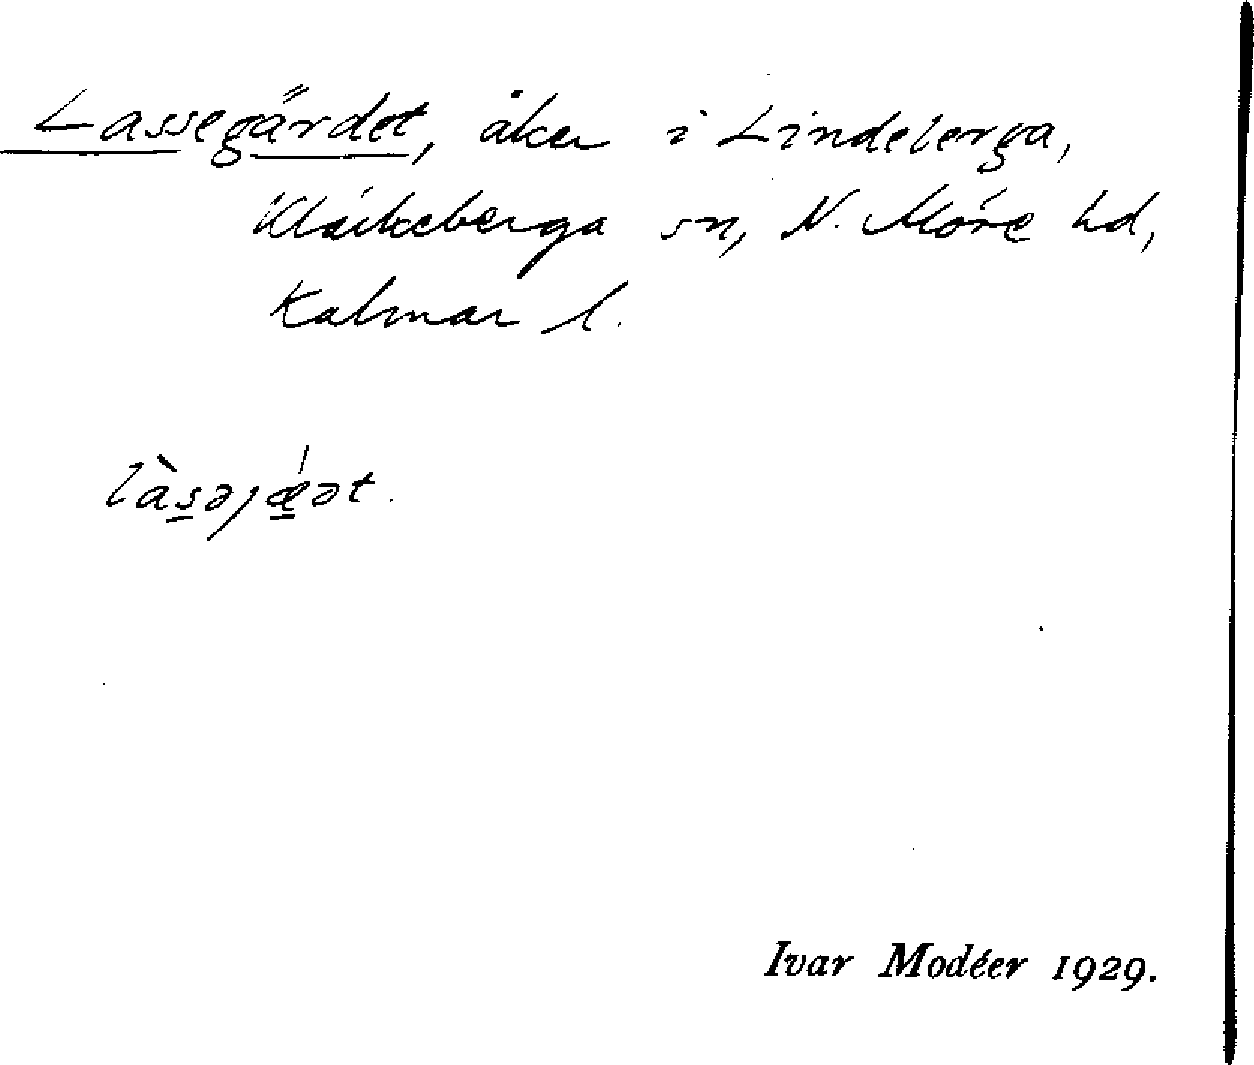 Lassegärdet, åker i Lindeberga,
Kläckeberga sn, N. Möre hd,
Kalmar l.
làs̲əjǽ̲ət.
Ivar Modéer 1929.